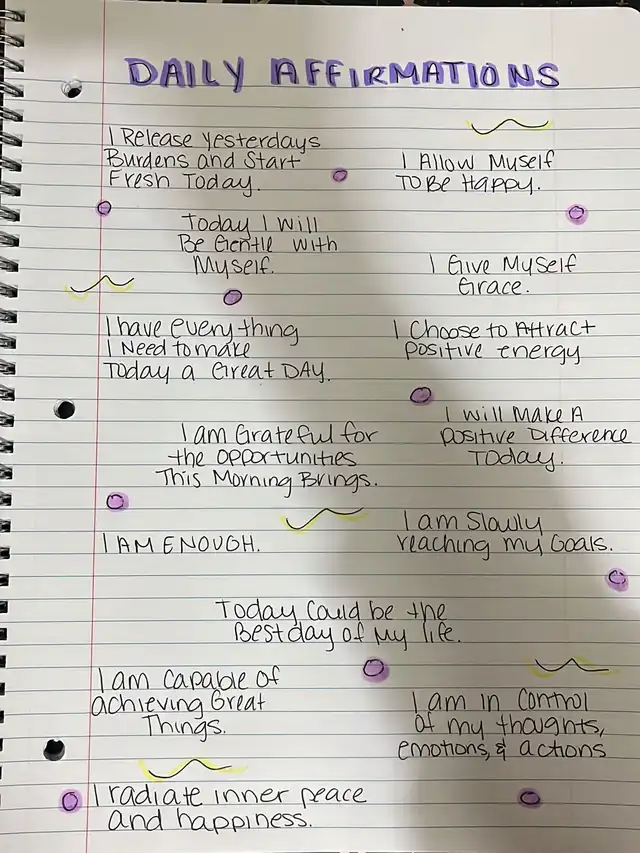 DAILY AFFIRMATIONS
I Release yesterdays
Burdens and Start
Fresh Today.
I Allow Myself
To Be Happy.
Today I Will
Be Gentle with
Myself.
I Give Myself
Grace.
I have everything
I Need to make
Today a Great DAY.
I Choose to Attract
positive energy
I will Make A
positive Difference
Today.
I am Grateful for
the opportunities
This Morning Brings.
I AM ENOUGH.
I am Slowly
reaching my Goals.
Today Could be the
Best day of My life.
I am Capable of
achieving Great
Things.
I am in Control
of my thoughts,
emotions, & actions
I radiate inner peace
and happiness.